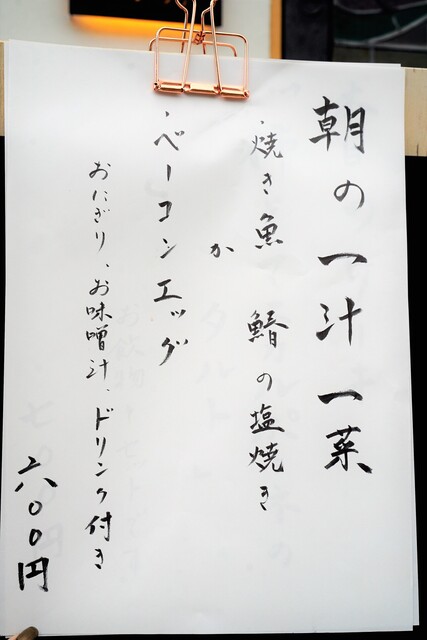 朝の一汁一菜
・焼き魚 鰆の塩焼き
か
・ベーコンエッグ
おにぎり、お味噌汁、ドリンク付き
六〇〇円